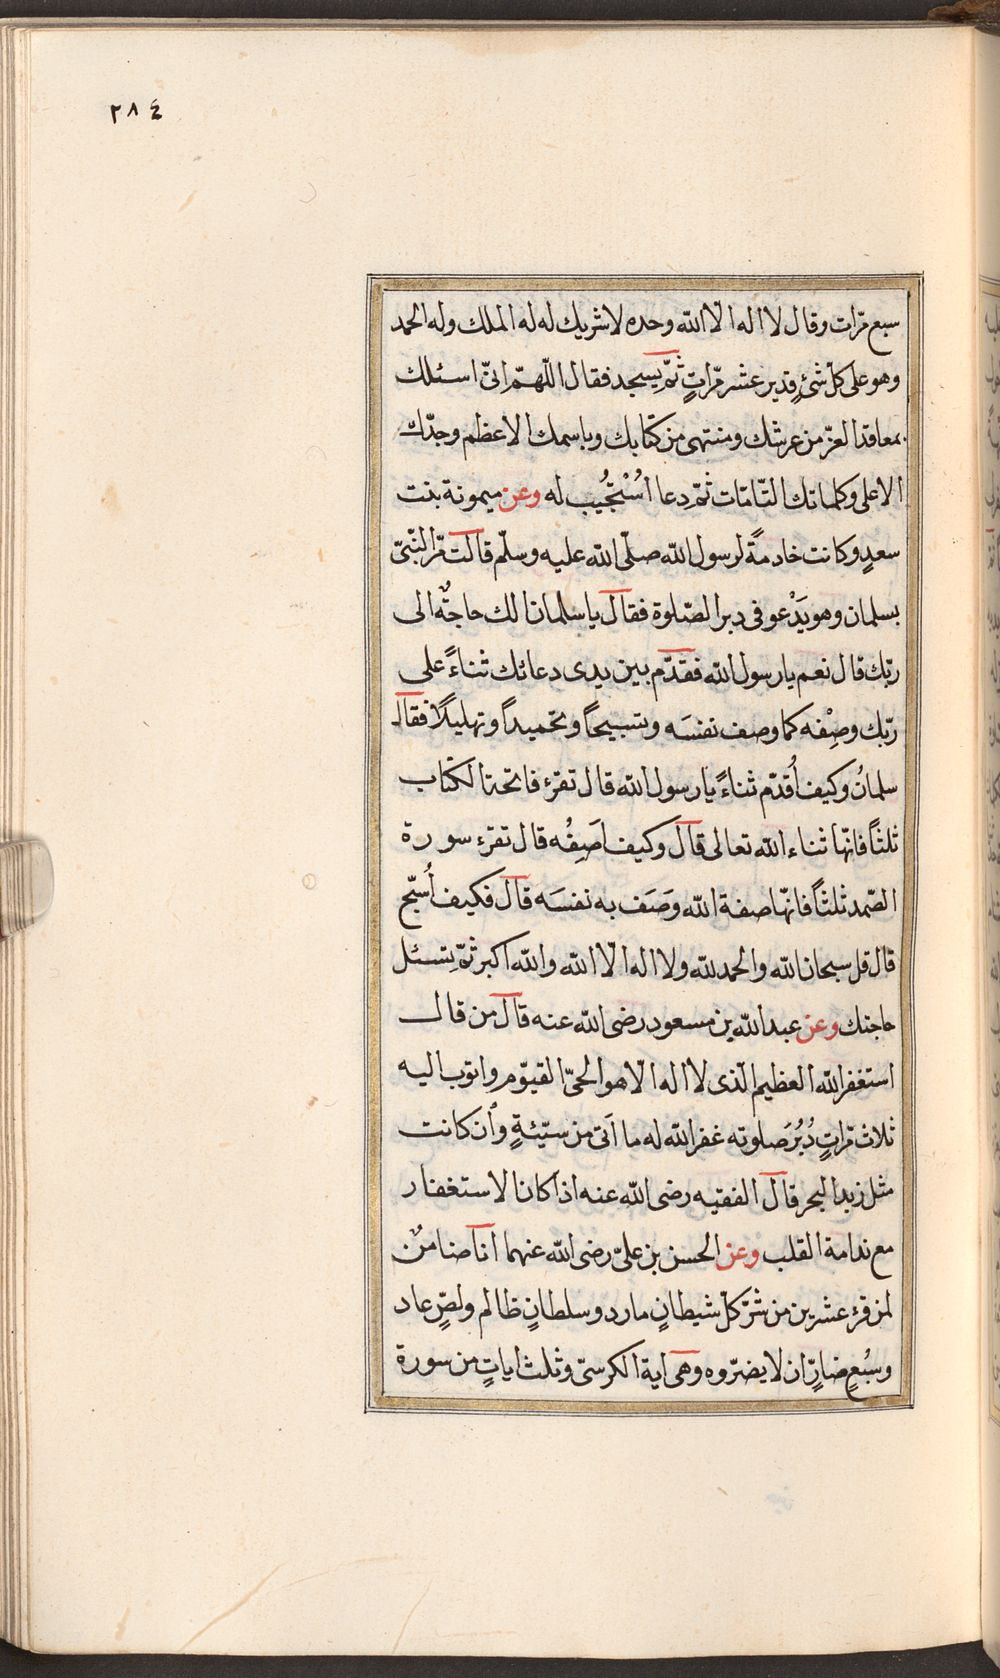 ٢٨٤
سبع مرّات وقال لا اله الّا الله وحده لا شريك له له الملك وله الحمد
وهو على كلّ شئٍ قدير عشر مرّاتٍ ثمّ يسجد فقال اللّهمّ انّى اسئلك
بمعاقد العزّ من عرشك ومنتهى من كتابك وباسمك الاعظم وجدّك
الاعلى وكلماتك التّامّات ثمّ دعا اسْتُجُيب له وعن ميمونة بنت
سعدٍ وكانت خادمةً لرسول الله صلّى الله عليه وسلّم قالت مرّ النّبىّ
بسلمان وهو يَدْعو فى دبر الصّلوة فقال يا سلمان الك حاجةٌ الى
ربّك قال نعم يا رسول الله فقدّم بين يدى دعائك ثناءً على
ربّك وصِفْه كما وصف نفسَه وتسبيحاً وتحميداً وتهليلًا فقال
سلمانُ وكيف اُقدّم ثناءً يا رسول الله قال تقرء فاتحة الكتاب
ثلثاً فانّها ثناء الله تعالى قال وكيف اَصِفُه قال تقرء سورة
الصّمد ثلثاً فانّها صفة الله وَصَف به نفسَه قال فكيف اُسبّح
قال قل سبحان الله والحمد لله ولا اله الّا الله والله اكبر ثمّ تسئل
حاجتك وعن عبد الله بن مسعود رضى الله عنه قال من قال
استغفر الله العظيم الّذى لا اله الّا هو الحىّ القيّوم واتوب اليه
ثلاث مرّاتٍ دُبُرَ صلوته غفر الله له ما اَتى من سيّئةٍ وأن كانت
مثل زبد البحر قال الفقيه رضى الله عنه اذا كان الاستغفار
مع ندامة القلب وعن الحسن بن علىّ رضى الله عنهما انا ضامنٌ
لمن قرء عشرين من شرّ كلّ شيطانٍ مارد وسلطانٍ ظالم ولصٍّ عاد
وسبُعٍ ضارّ ان لا يضرّوه وهى اية الكرسىّ وثلث اياتٍ من سورة